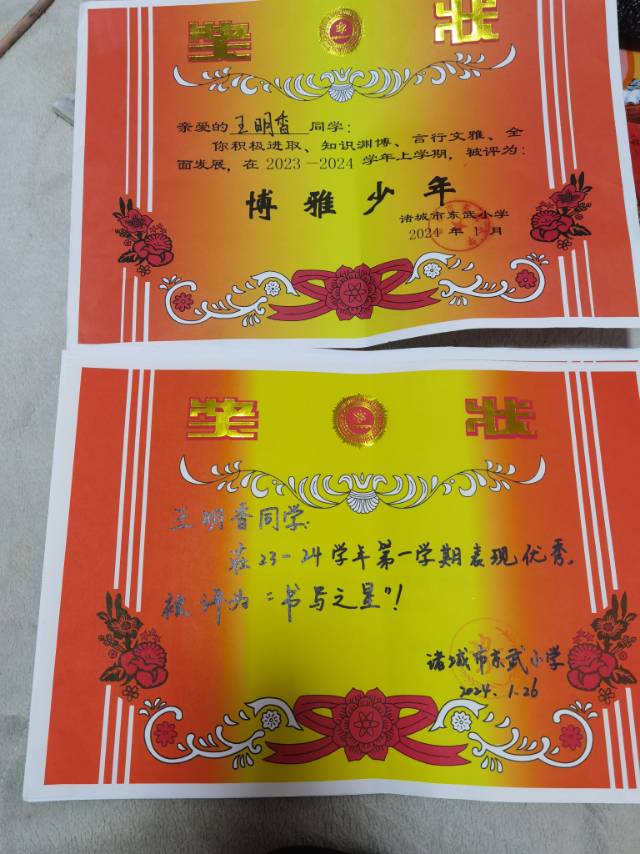 奖 状
亲爱的 王明香 同学：
你积极进取、知识渊博、言行文雅、全
面发展，在 2023－2024 学年上学期，被评为：
博雅少年
诸城市东武小学
2024 年 1 月
奖 状
王明香同学：
在23-24学年第一学期表现优秀，
被评为“书写之星”！
诸城市东武小学
2024.1.26